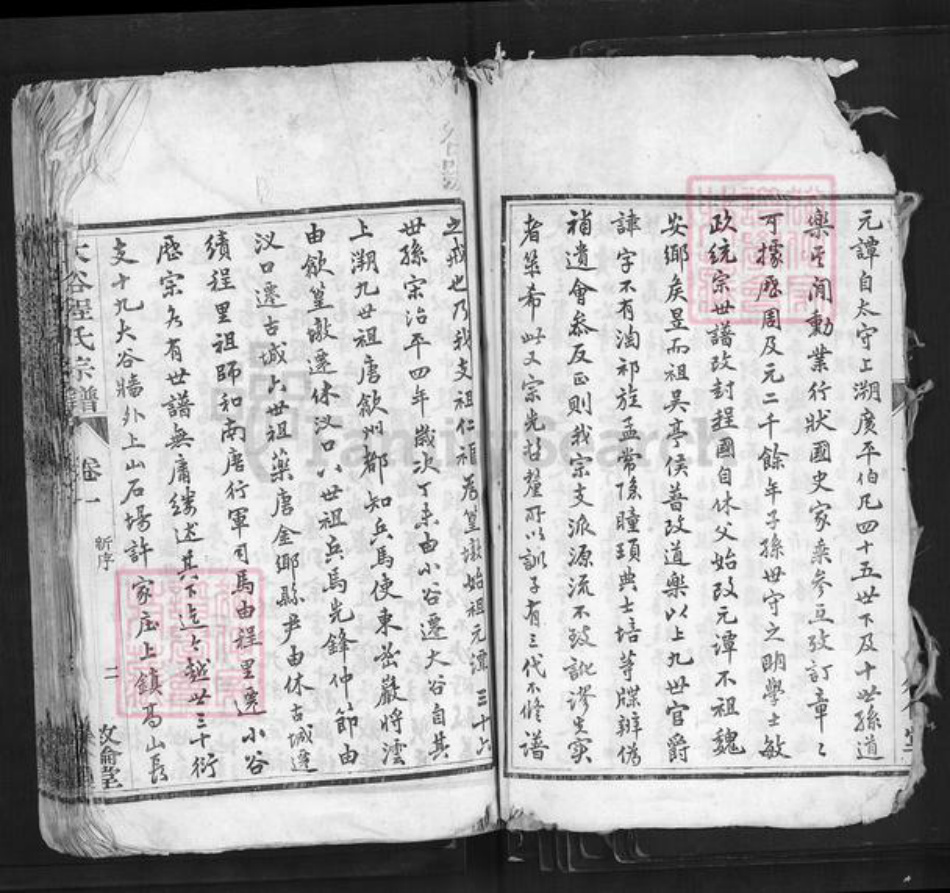 元譚自太守上溯廣平伯凡四十五世下及十世孫道
樂其間勳業行狀國史家乘參互攷訂章〻
可據歷周及元二千餘年子孫世守之明學士敏
政統宗世譜改封程國自休父始改元譚不祖魏
安鄉矦昱而祖吳亭侯普改道樂以上九世官爵
諱字不有洵祁旋孟常隱瞳頊典士培等牒辨偽
補遺會叅反正則我宗支派源流不致訛謬失实
者第希此又宗光於釐所以訓子有三代不修譜
之戒也乃我支祖仁禎篁墩始祖元潭三十六
世孫宗治平四年歲次丁未由小谷遷大谷自其
上溯九世祖唐歙州都知兵馬使東密巖將澐
由歙篁墩遷休汊口八世祖兵馬先鋒仲節由
汊口遷古城六世祖藥唐金鄉縣尹由休古城遷
績程里祖師和南唐行軍司馬由程里遷小谷
歷宗久有世譜無庸縷述其下迄今越世三十衍
支十九大谷牆外上山石塲許家庄上鎮高山長
大谷程氏宗譜
卷一
新序
二
文倫堂
FamilySearch